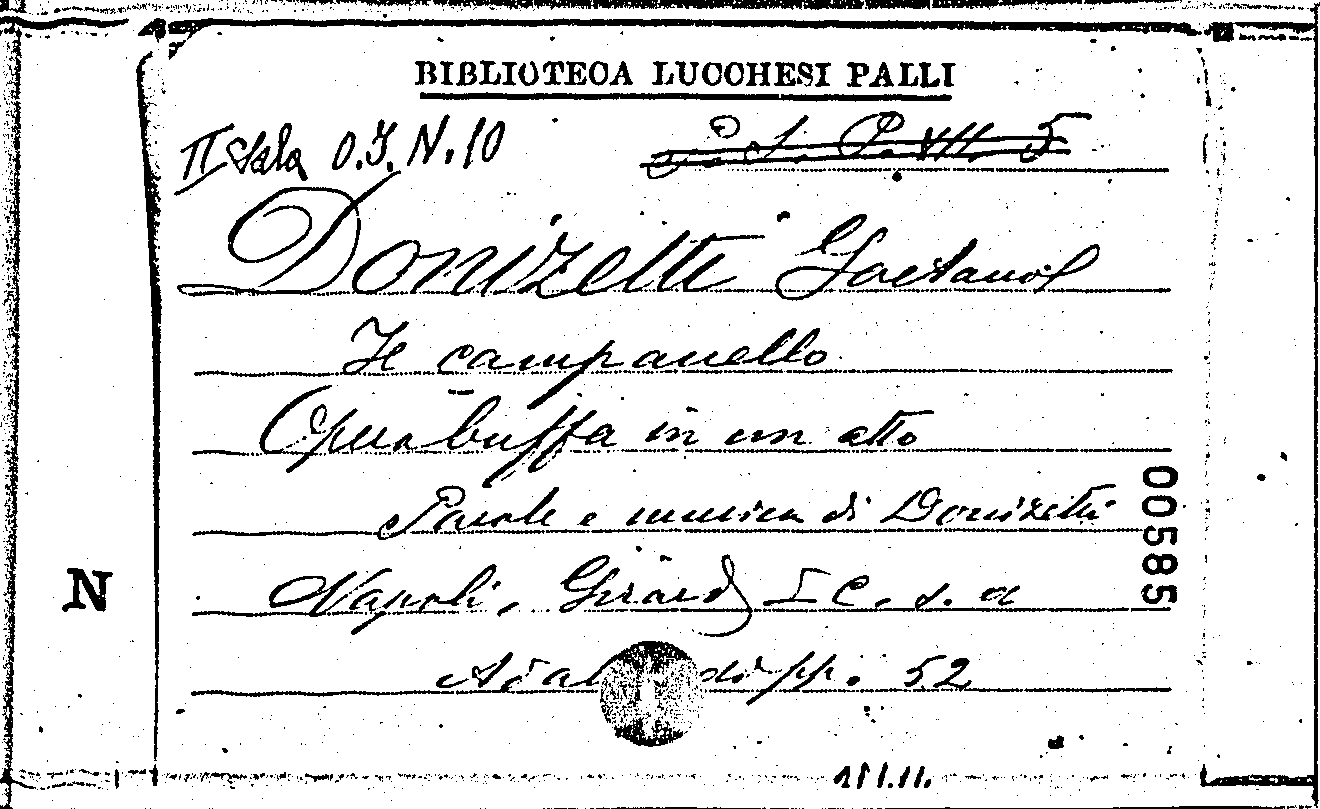 BIBLIOTECA LUCCHESI PALLI
II Sala O.I.N.10
P. VII. 5
Donizetti Gaetano
Il campanello
Opera buffa in un atto
Parole e musica di Donizetti
Napoli, Girard e C. s. a
di pp. 52
00585
N